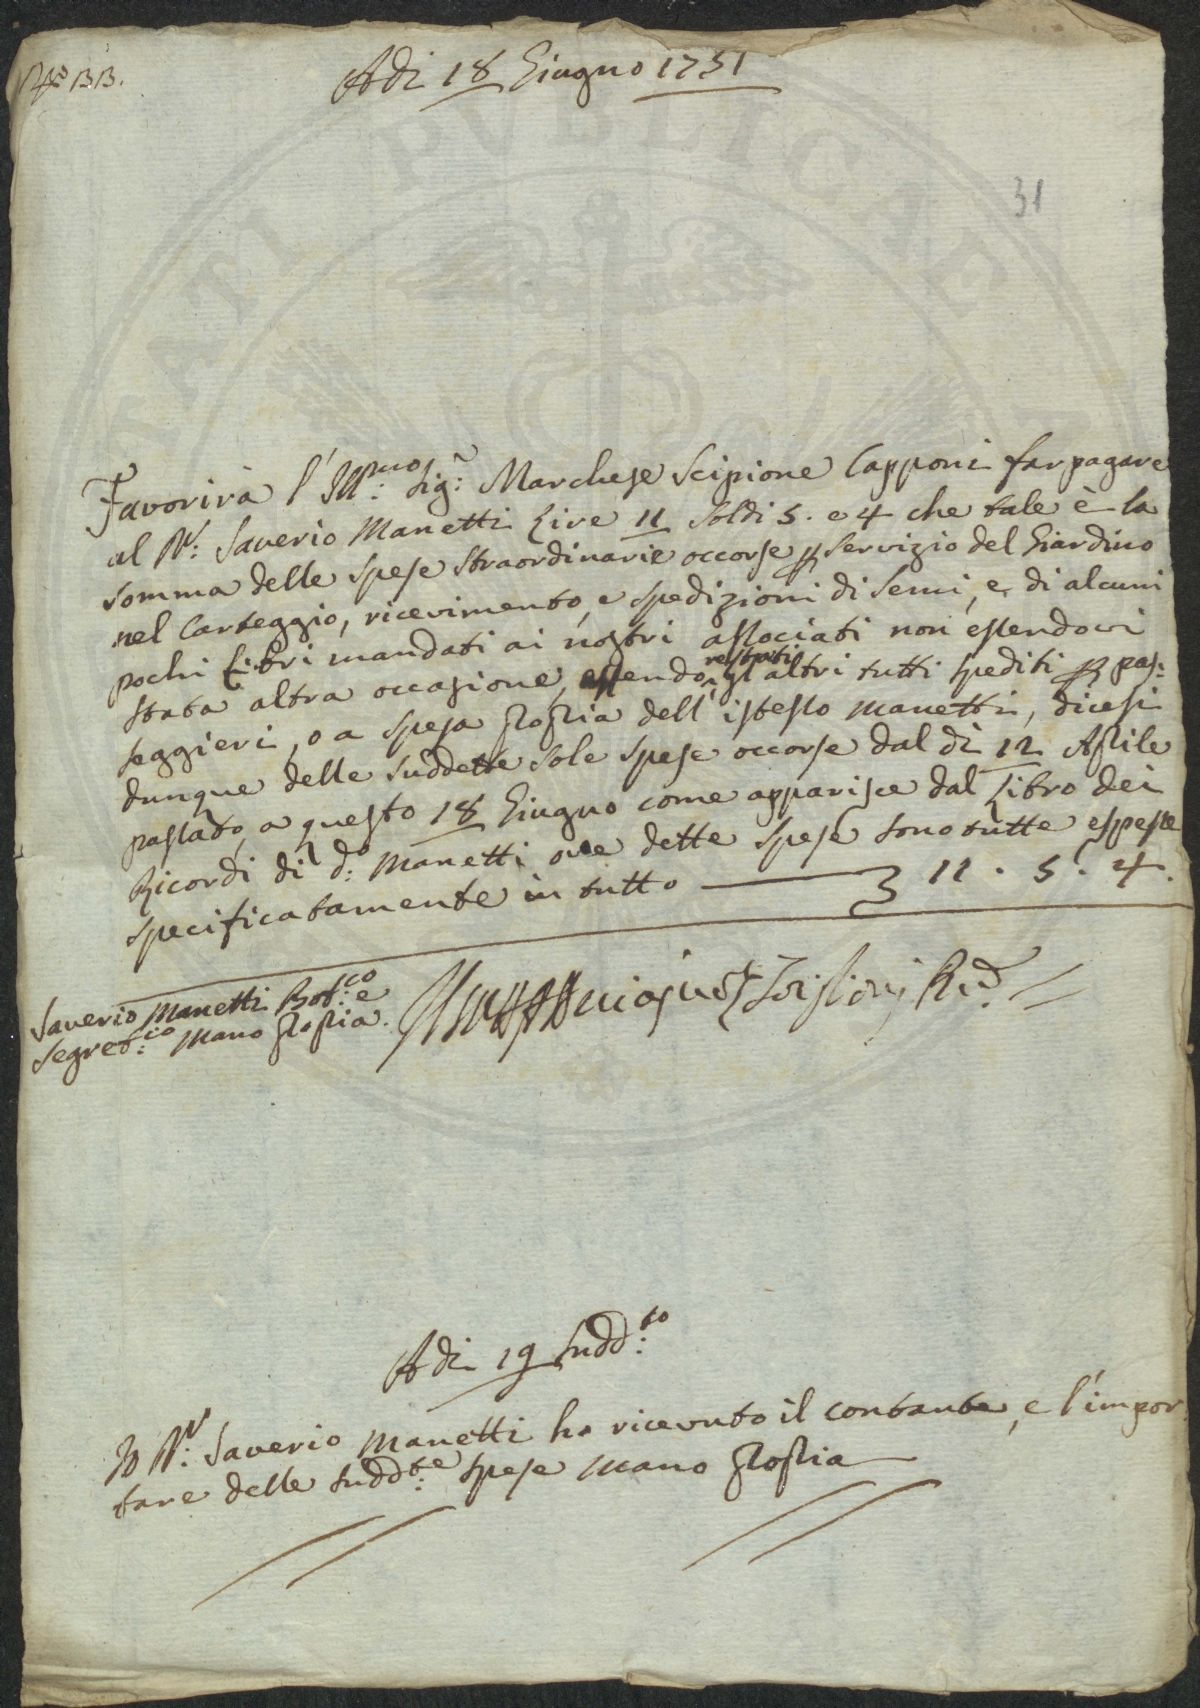 N.º 133.
Adi 18 Giugno 1751
31
Favorirà l'Ill.mo Sig.r Marchese Scipione Capponi far pagare
al D.r Saverio Manetti Lire 11 Soldi 5. e 4 che tale è la
somma delle Spese straordinarie occorse p servizio del Giardino
nel Carteggio, ricevimento, e spedizioni di semi, e di alcuni
pochi Libri mandati ai nostri associati non essendovi
stata altra occasione, essendo restati gl'altri tutti spediti p pas:
seggieri, o a spesa propria dell'istesso Manetti, dicesi
dunque delle suddette sole spese occorse dal dì 12 Aprile
passato, a questo 18 Giugno come apparisce dal Libro dei
Ricordi di d.o Manetti ove dette Spese sono tutte espresse
specificatamente in tutto — 11. 5. 4.
Saverio Manetti Bot.co e
Segret.io Mano propria.
Adi 19 Sudd.to
Io D.r Saverio Manetti ho ricevuto il contante, e l'impor
tare delle sudd.te spese Mano propria
PVBLICAE